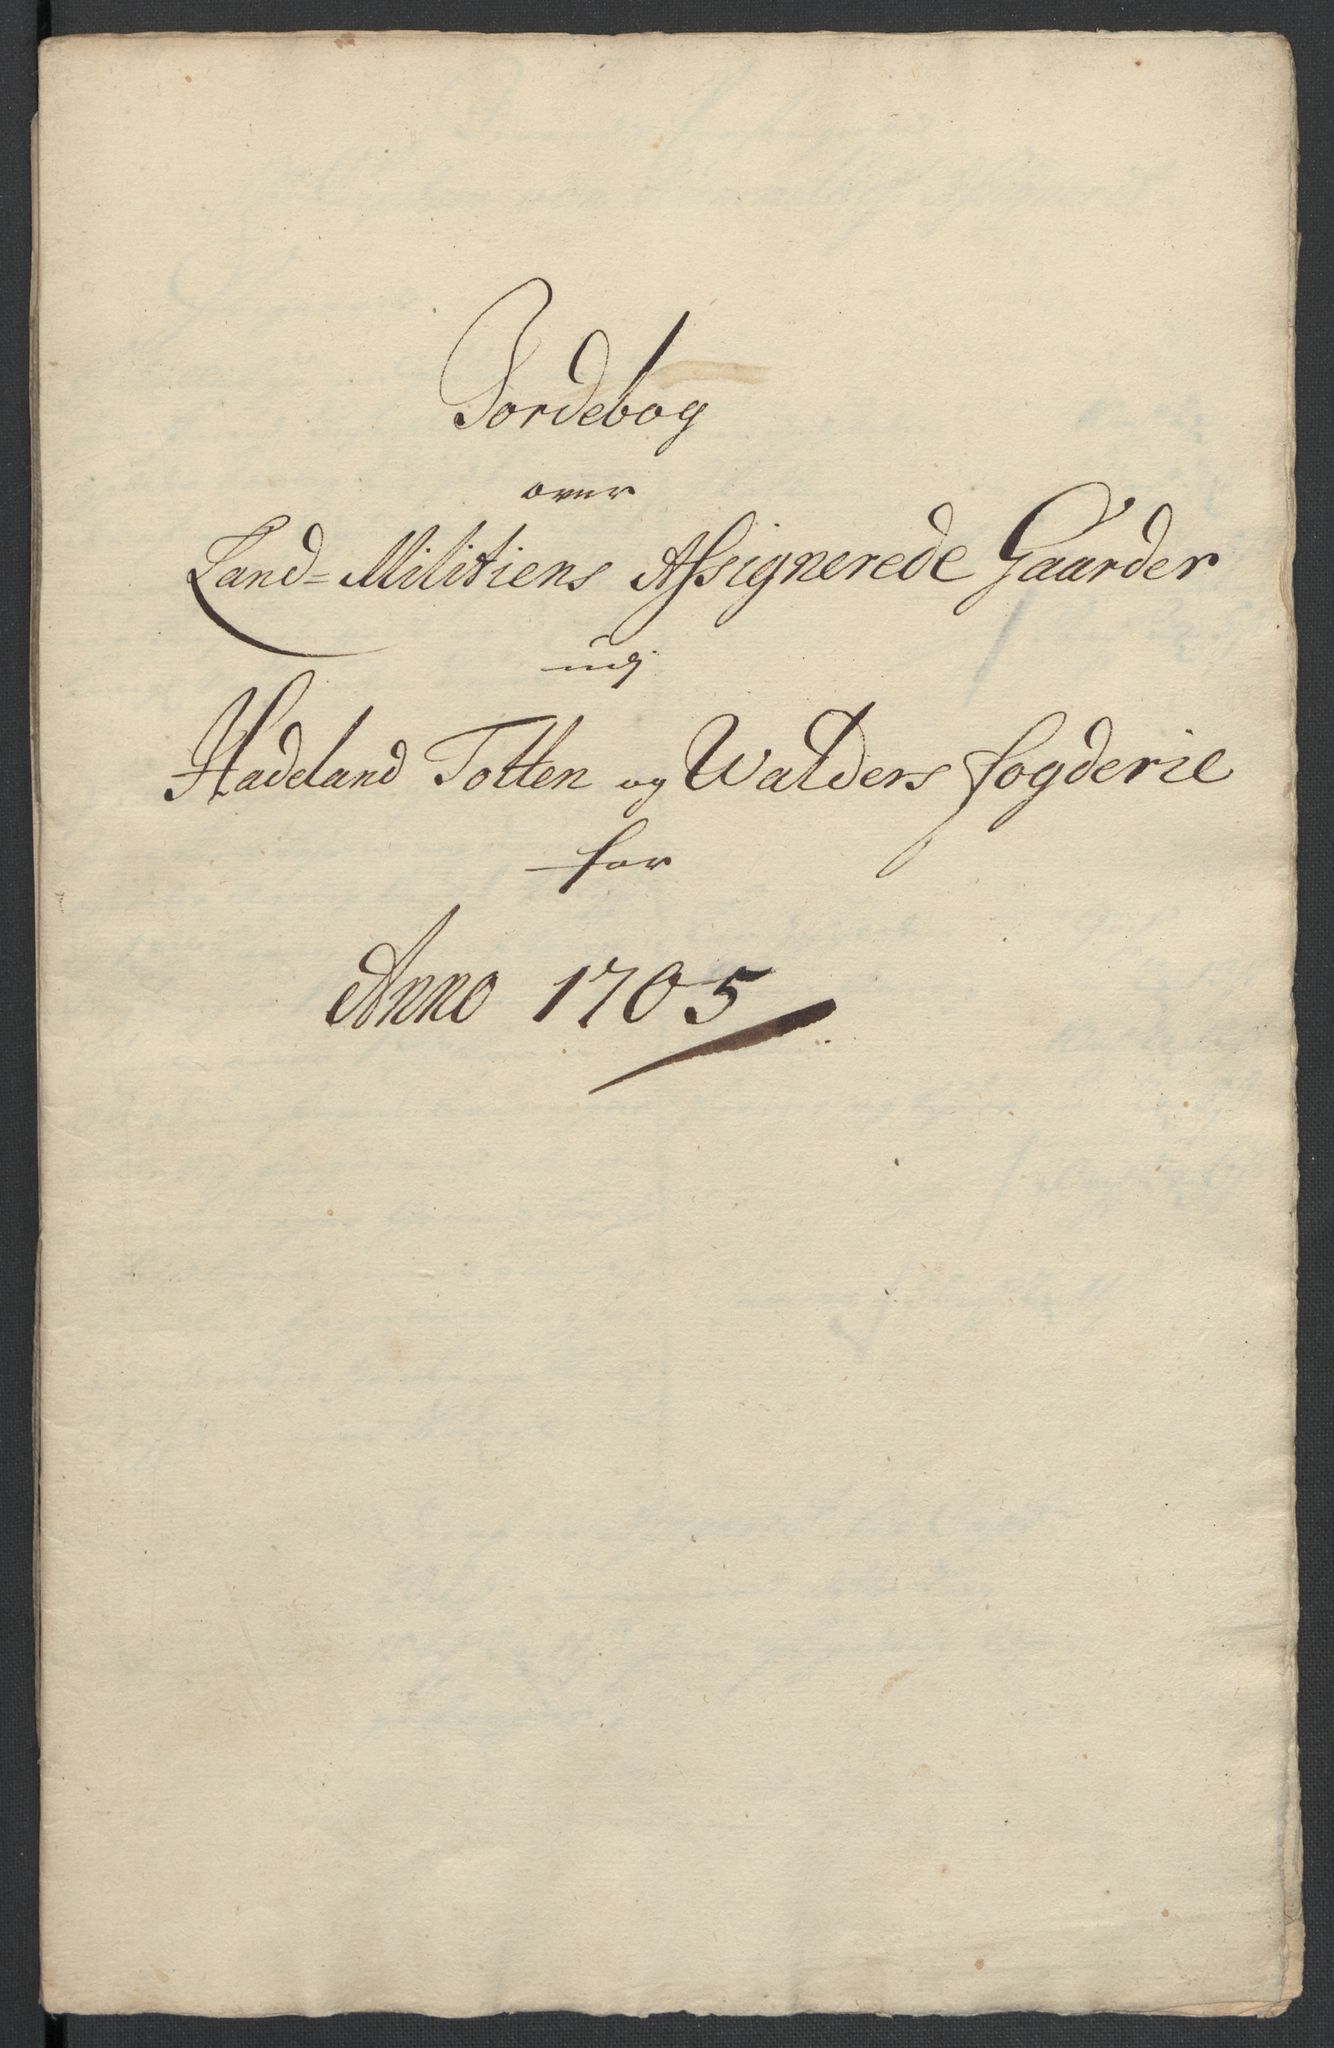 Jordebog
over
Land=Militiens Assignerede Gaarder
udj
Hadeland Totten og Walders fogderie
for
Anno 1705